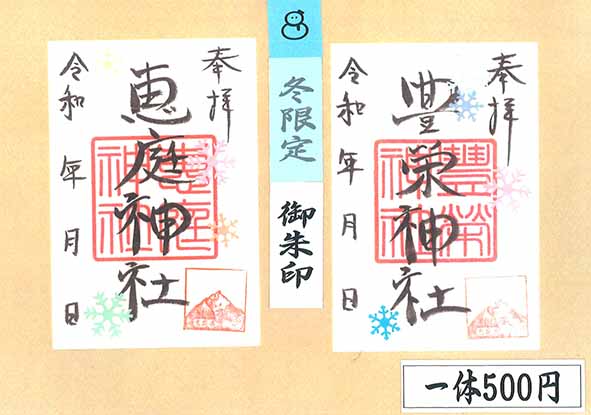 奉拝
豊栄神社
豊榮神社
令和 年 月 日
冬限定
御朱印
奉拝
恵庭神社
恵庭神社
令和 年 月 日
一体500円